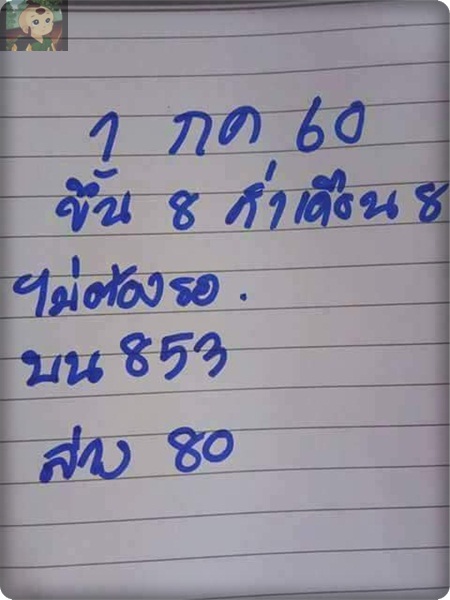 1 กค 60
ขึ้น 8 ค่ำเดือน 8
ไม่ต้องรอ.
บน 853
ล่าง 80